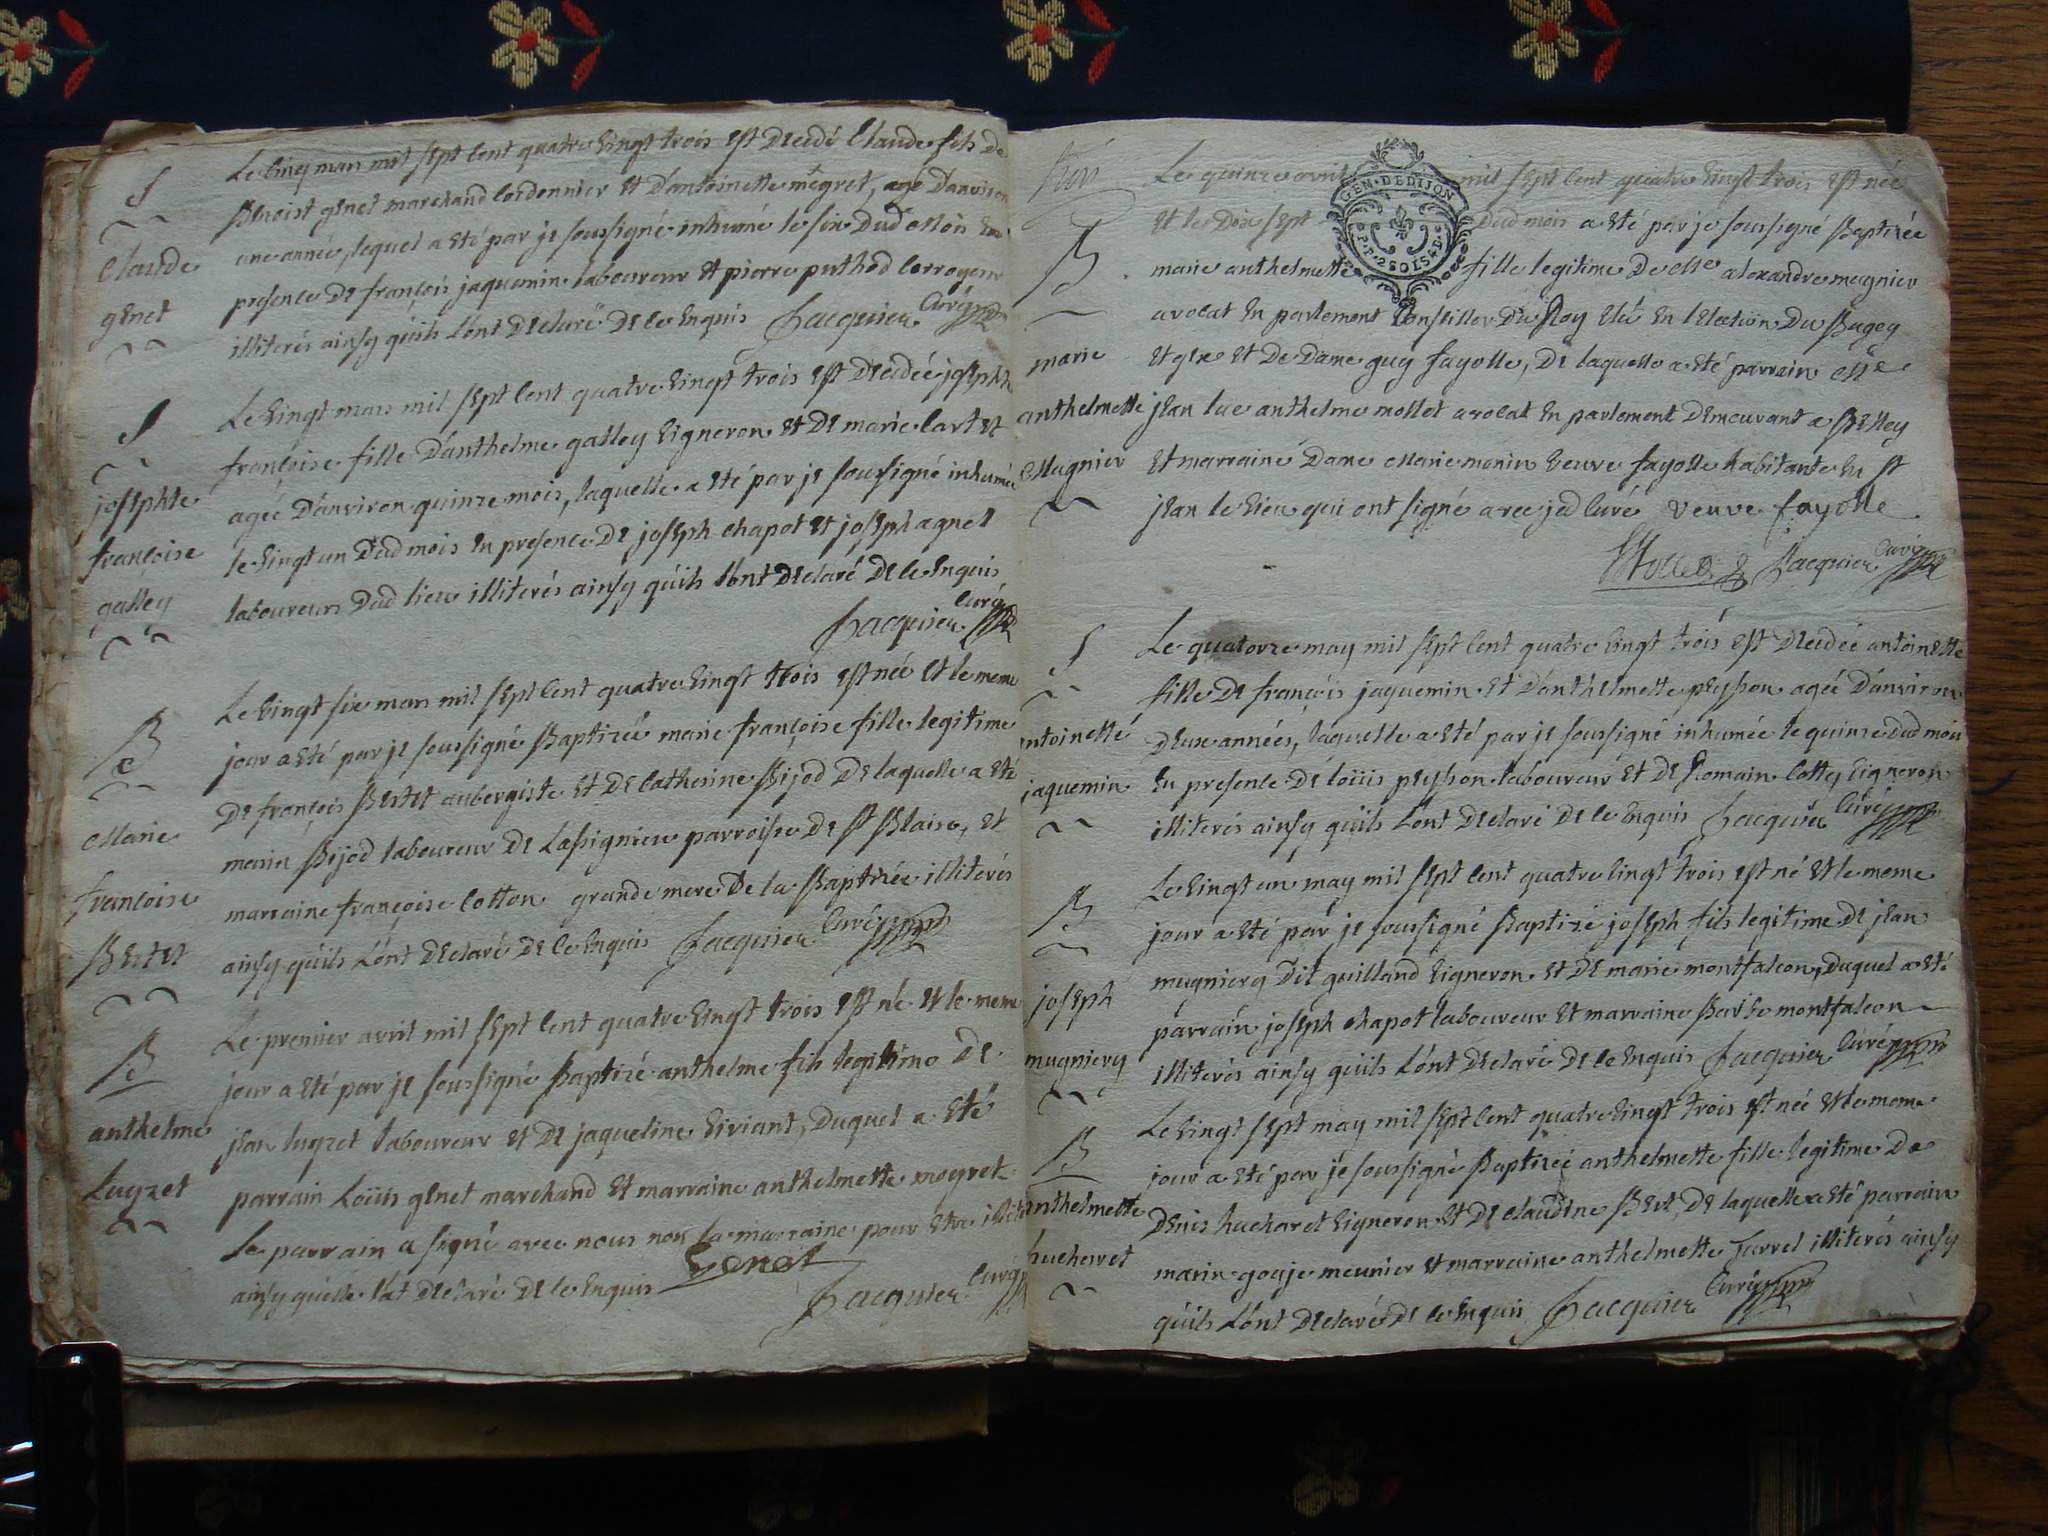 S
Claude
genet
Le cinq mars mil sept cent quatre vingt trois est decedé Claude fils de
Benoist genet marchand cordonnier et d'antoinette mégret, agé d'anviron
une année, lequel a eté par je soussigné inhumé le six dud mois en
presence de françois jaquemin laboureur et pierre puthod corroyeur
illiterés ainsy quils l'ont declaré de ce enquis Jacquier Curé
S
josephte
françoise
galley
Le vingt mars mil sept cent quatre vingt trois est decedée josephte
françoise fille d'anthelme galley vigneron et de marie cartet
agée d'anviron quinze mois, laquelle a eté par je soussigné inhumée
le vingt un dud mois en presence de joseph chapot et joseph agnet
laboureurs dud lieu illiterés ainsy quils l'ont declaré de ce enquis
Jacquier Curé
B
Marie
françoise
Bertet
Le vingt six mars mil sept cent quatre vingt trois est née et le meme
jour a eté par je soussigné Baptizée marie françoise fille legitime
de françois Bertet aubergiste et de catherine Bijod de laquelle a eté
marin Bijod laboureur de Lassignieu parroisse de St Blaise, et
marraine françoise cotton grande mere de la Baptizée illiterés
ainsy quils l'ont declaré de ce enquis Jacquier Curé
B
anthelme
Luyzet
Le premier avril mil sept cent quatre vingt trois est né et le meme
jour a eté par je soussigné Baptizé anthelme fils legitime de
jean luyzet laboureur et de jaqueline viviant, duquel a eté
parrain Loüis genet marchand et marraine anthelmette megret
Le parrain a signé avec nous non la marraine pour etre illit
ainsy quelle l'at declaré de ce enquis Genet
Jacquier Curé
GEN. DE DIJON
B
marie
anthelmette
Mugnier
Le quinze avril mil sept cent quatre vingt trois est née
et le dix sept dud mois a eté par je soussigné Baptizée
marie anthelmette fille legitime de Mre alexandre mugnier
avocat en parlement Conseiller du Roy elû en l'election du Bugey
et gex et de Dame guy fayolle, de laquelle a eté parrain Mre
jean luc anthelme mollet avocat en parlement demeurant a Belley
et marraine Dame Marie monin veuve fayolle habitante en St
jean le vieux qui ont signé avec jed curé veuve fayolle
Mollet Jacquier Curé
S
antoinette
jaquemin
Le quatorze may mil sept cent quatre vingt trois est decedée antoinette
fille de françois jaquemin et d'anthelmette peysson agée d'anviron
deux années, laquelle a eté par je soussigné inhumée le quinze dud mois
en presence de loüis peysson laboureur et de Romain cottey vigneron
illiterés ainsy quils l'ont declaré de ce enquis Jacquier Curé
B
joseph
mugniery
Le vingt un may mil sept cent quatre vingt trois est né et le meme
jour a eté par je soussigné Baptizé joseph fils legitime de jean
mugniery dit guilland vigneron et de marie montfalcon, duquel a eté
parrain joseph chapot laboureur et marraine Barbe montfalcon
illiterés ainsy quils l'ont declaré de ce enquis Jacquier Curé
B
anthelmette
hucharet
Le vingt sept may mil sept cent quatre vingt trois est née et le meme
jour a eté par je soussigné Baptizée anthelmette fille legitime de
denis hucharet vigneron et de claudine Bert, de laquelle a eté parrain
marin gouje meunier et marraine anthelmette farret illiterés ainsy
quils l'ont declaré de ce enquis Jacquier Curé